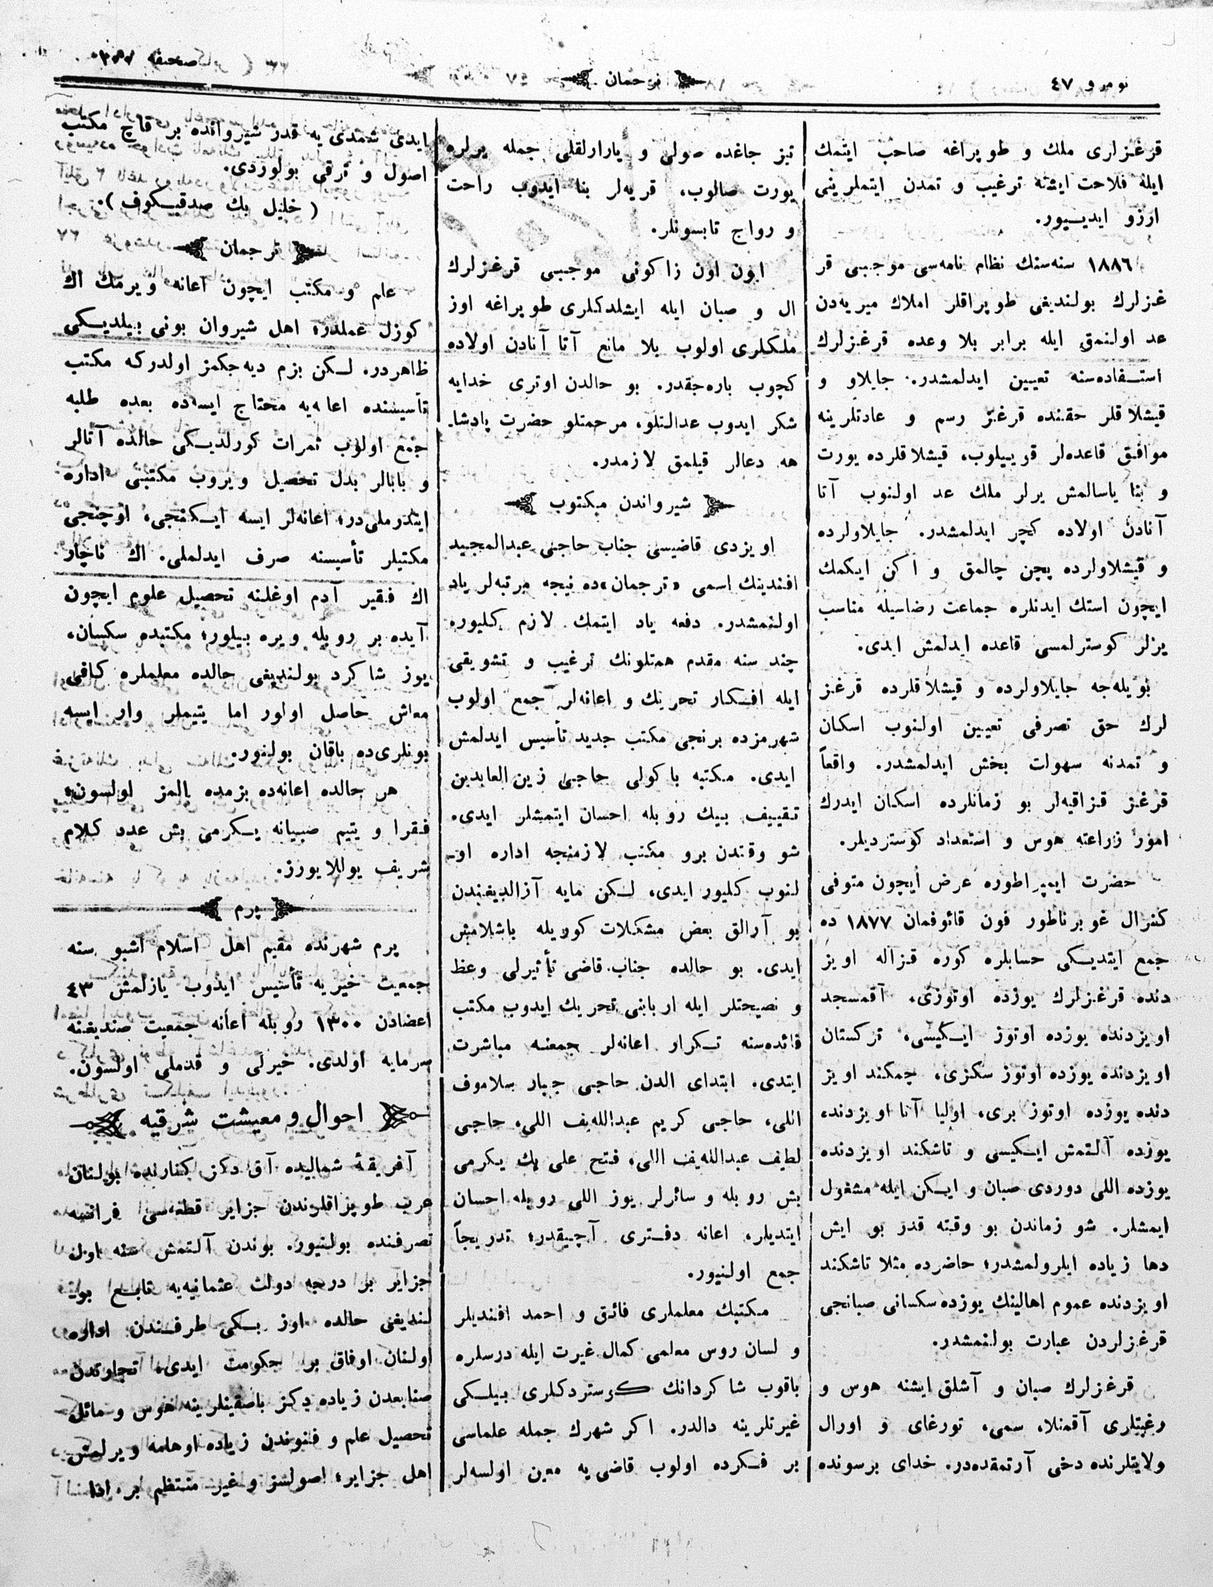 نومرو ٤٧
ترجمان
صحیفه
قرغزلری ملك و طوپراغه صاحب ایتمك
ایله فلاحت ایشنه ترغیب و تمدن ایتملرینی
ارزو ایدییور.
١٨٨٦ سنه‌سنك نظام نامه‌سی موجبی قر
غزلرك بولندیغی طوپراقلر املاك میریه‌دن
عد اولنمق ایله برابر بلا وعده قرغزلرك
استفاده‌سنه تعیین ایدلمشدر. جایلاو و
قیشلاقلر حقنده قرغز رسم و عادتلرینه
موافق قاعده‌لر قوییلوب، قیشلاقلرده یورت
و بنا یاسالمش یرلر ملك عد اولنوب آتا
آنادن اولاده کچر ایدلمشدر. جایلاولرده
و قیشلاولرده پچن چالمق و اکن ایکمك
ایچون استك ایدنلره جماعت رضاسیله مناسب
یرلر کوسترلمسی قاعده ایدلمش ایدی.
بویله‌جه جایلاولرده و قیشلاقلرده قرغز
لرك حق تصرفی تعیین اولنوب اسکان
و تمدنه سهولت بخش ایدلمشدر. واقعاً
قرغز قزاقیه‌لر بو زمانلرده اسکان ایدرك
امور زراعته هوس و استعداد کوستردیلر.
حضرت ایمپراطوره عرض ایچون متوفی
کنرال غوبرناطور فون قائوفمان ١٨٧٧ ده
جمع ایتدیکی حسابلره کوره قزاله اویز
دنده قرغزلرك یوزده اوتوزی، آقمسجد
اویزدنده یوزده اوتوز ایکیسی، ترکستان
اویزدنده یوزده اوتوز سکزی، چمکند اویز
دنده یوزده اوتوز بری، اولیا آتا اویزدنده
یوزده آلتمش ایکیسی و تاشکند اویزدنده
یوزده اللی دوردی صبان و ایکن ایله مشغول
ایمشلر. شو زماندن بو وقته قدر بو ایش
دها زیاده ایلرولمشدر؛ حاضرده مثلا تاشکند
اویزدنده عموم اهالینك یوزده سکسانی صبانجی
قرغزلردن عبارت بولنمشدر.
قرغزلرك صبان و آشلق ایشنه هوس و
رغبتلری آقمنلا، سمی، تورغای و اورال
ولایتلرنده دخی آرتمقده‌در. خدای برسونده
تیز جاغده صولی و یارارلقلی جمله یرلره
یورت صالوب، قریه‌لر بنا ایدوب راحت
و رواج تابسونلر.
ایون اون زاکونی موجبی قرغزلرك
ال و صبان ایله ایشلدکلری طوپراغه اوز
ملکلری اولوب بلا مانع آتا آنادن اولاده
کچوب باره‌جقدر. بو حالدن اوتری خدایه
شکر ایدوب عدالتلو، مرحمتلو حضرت پادشا
هه دعالر قیلمق لازمدر.
شیرواندن مکتوب
اویزدی قاضیسی جناب حاجی عبدالمجید
افندینك اسمی «ترجمان»ده نیجه مرتبه‌لر یاد
اولنمشدر. دفعه یاد ایتمك لازم کلیور،
چند سنه مقدم همتلونك ترغیب و تشویقی
ایله افکار تحریك و اعانه‌لر جمع اولوب
شهرمزده برنجی مکتب جدید تأسیس ایدلمش
ایدی. مکتبه باکولی حاجی زین العابدین
تقییف بیك روبله احسان ایتمشلر ایدی.
شو وقتدن برو مکتب لازمنجه اداره او-
لنوب کلیور ایدی، لکن مایه آزالدیغندن
بو آرالق بعض مشکلات کوریله باشلامش
ایدی. بو حالده جناب قاضی تأثیرلی وعظ
و نصیحتلر ایله اربابنی تحریك ایدوب مکتب
فائده‌سنه تکرار اعانه‌لر جمعنه مباشرت
ایتدی. ابتدای الدن حاجی جبار سلاموف
اللی، حاجی کریم عبدالله‌یف اللی، حاجی
لطیف عبدالله‌یف اللی، فتح علی بك یکرمی
بش روبله و سائرلر یوز اللی روبله احسان
ایتدیلر، اعانه دفتری آچیقدر؛ تدریجاً
جمع اولنیور.
مکتبك معلملری فائق و احمد افندیلر
و لسان روس معلمی کمال غیرت ایله درسلره
باقوب شاکردانك کوستردکلری بیلکی
غیرتلرینه دالدر. اکر شهرك جمله علماسی
بر فکرده اولوب قاضی‌یه معین اولسه‌لر
ایدی شمدی یه قدر شیروانده بر قاچ مکتب
اصول و ترقی بولوردی.
(خلیل بك صدقیکوف).
ترجمان
علم و مکتب ایچون اعانه ویرمك اك
کوزل عملدر؛ اهل شیروان بونی بیلدیکی
ظاهردر. لکن بزم دیه‌جکمز اولدرکه مکتب
تأسیسنده اعانه‌یه محتاج ایسه‌ده بعده طلبه
جمع اولوب ثمرات کورلدیکی حالده آتالر
و بابالر بدل تحصیل ویروب مکتبنی اداره
ایتدرملی‌در؛ اعانه‌لر ایسه ایکنجی، اوچنجی
مکتبلر تأسیسنه صرف ایدلملی. اك ناچار
اك فقیر آدم اوغلنه تحصیل علوم ایچون
آیده بر روبله ویره بیلور؛ مکتبده سکسان،
یوز شاکرد بولندیغی حالده معلملره کافی
معاش حاصل اولور اما یتیملر وار ایسه
بونلری‌ده باقان بولنور.
هر حالده اعانه‌ده بزمده المز اولسون؛
فقرا و یتیم صبیانه یکرمی بش عدد کلام
شریف یوللایورز.
پرم
پرم شهرنده مقیم اهل اسلام اشبو سنه
جمعیت خیریه تأسیس ایدوب یازلمش ٤٣
اعضادن ١٣٠٠ روبله اعانه جمعیت صندیغنه
سرمایه اولدی. خیرلی و قدملی اولسون.
احوال و معیشت شرقیه
آفریقهٔ شمالیده آق دکز کنارنده بولنان
عرب طوپراقلرندن جزایر قطعه‌سی فرانسه
تصرفنده بولنیور. بوندن آلتمش سنه اول
جزایر بر درجه دولت عثمانیه‌یه تابع بو-
لندیغی حالده اوز بکی طرفندن اداره
اولنان اوفاق بر حکومت ایدی. تجارتدن
صنایعدن زیاده دکز باصقینلرینه هوس و مائل
تحصیل علم و فنوندن زیاده اوهامه ویرلمش
اهل جزایر؛ اصولسز و غیر منتظم بر ادا